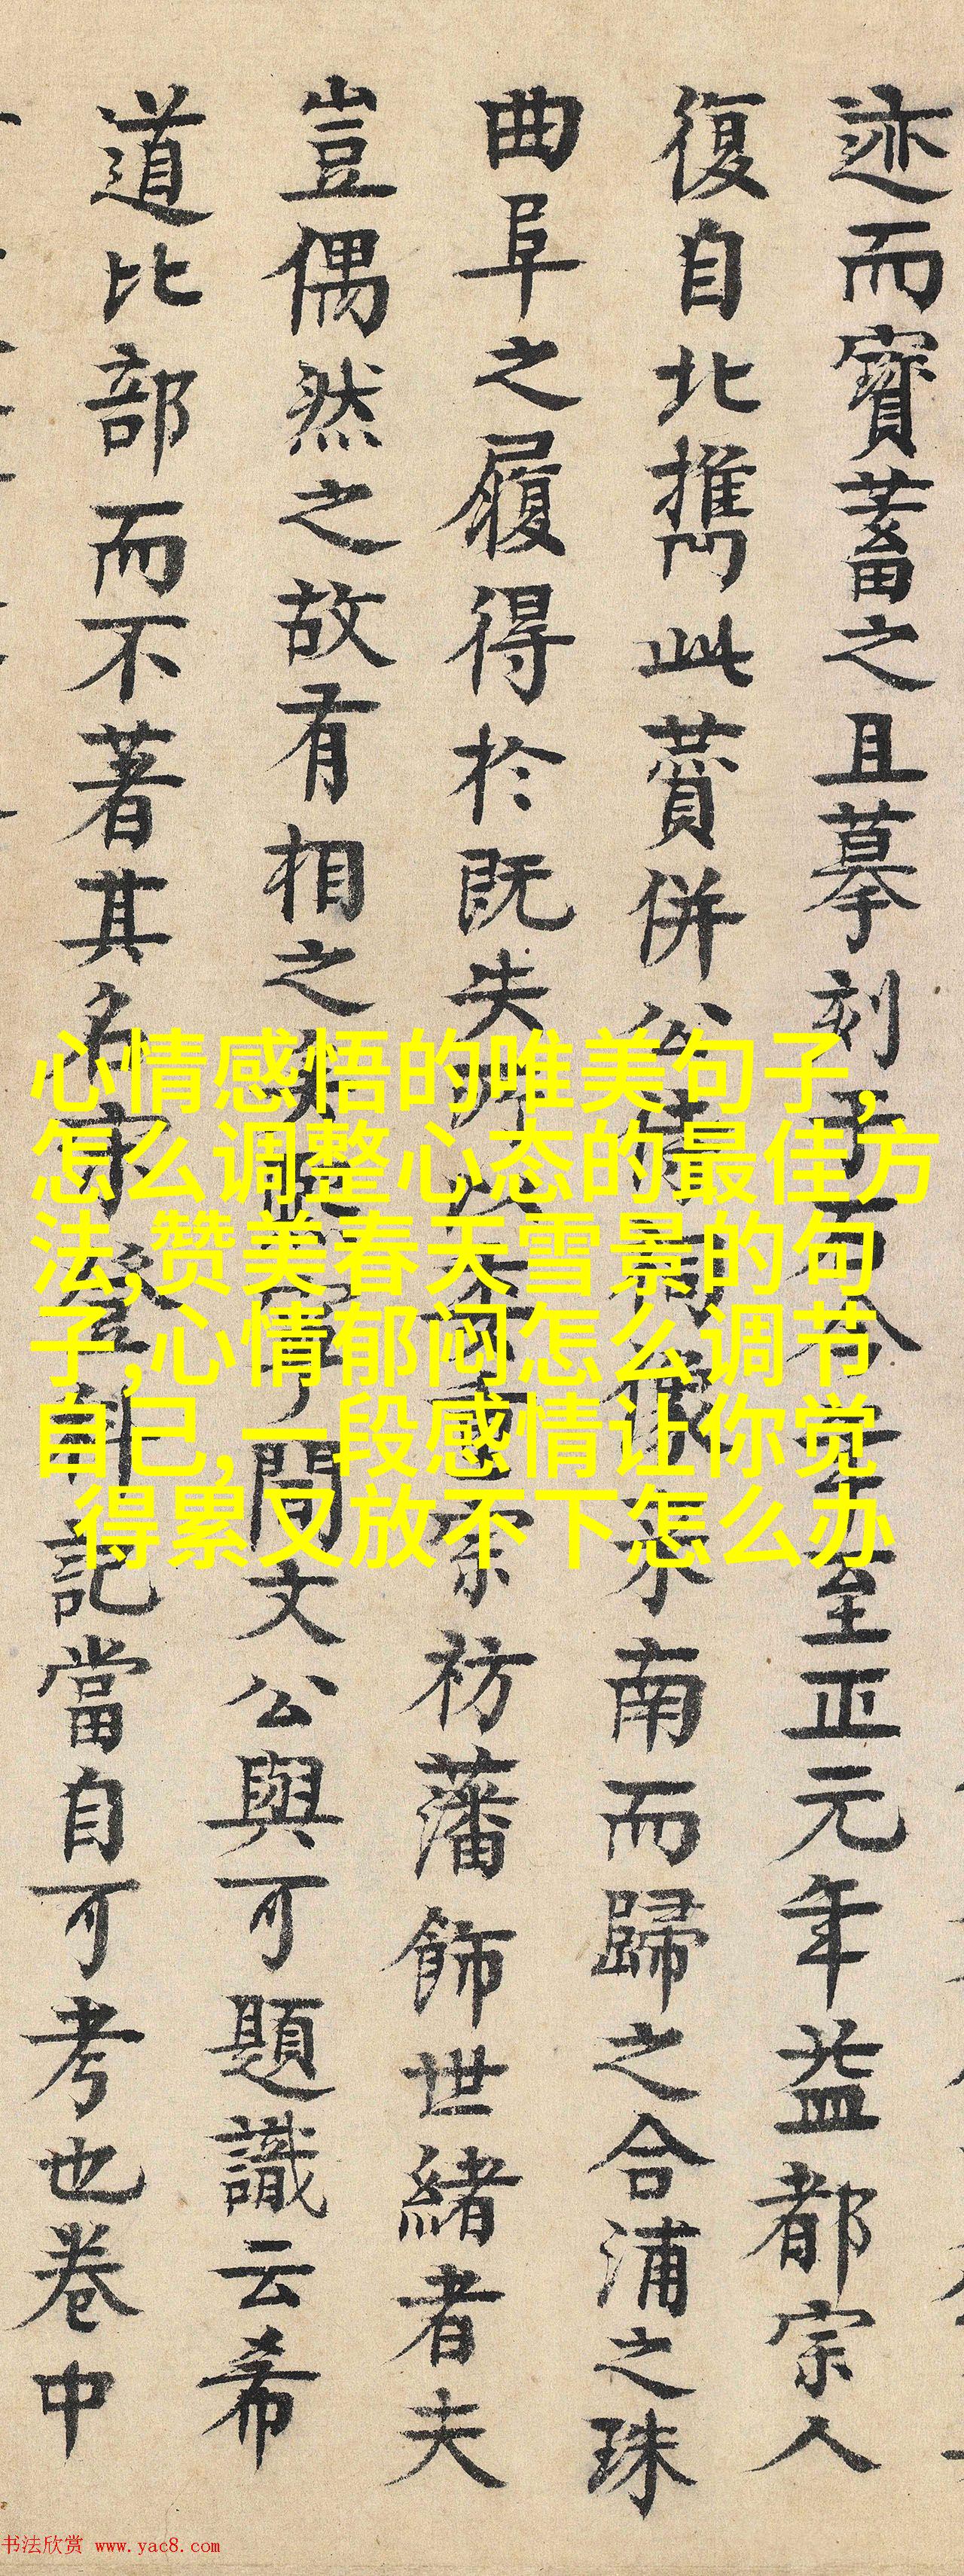 迹而寶蓄之且摹刻于石今至正元年益都宗人
復自北携此併公南而歸之合浦之珠
曲阜之履得於既失所以宗祊藩飾世緒者夫
豈偶然之故有相之矣間文公與可題識云希
道比部而不著其名守登科記當自可考也卷中
心情感悟的唯美句子,
怎么调整心态的最佳方
法,赞美春天雪景的句
子,心情郁闷怎么调节
自己,一段感情让你觉
得累又放不下怎么办
书法欣赏 www.yac8.com